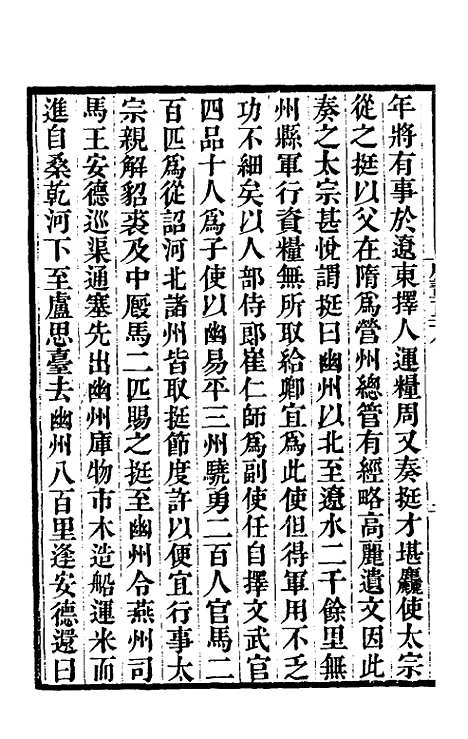 年將有事於遼東擇人運糧周又奏挺才堪麤使太宗
從之挺以父在隋爲營州總管有經略高麗遺文因此
奏之太宗甚悅謂挺曰幽州以北至遼水二千餘里無
州縣軍行資糧無所取給卿宜爲此使但得軍用不乏
功不細矣以人部侍郎崔仁師爲副使任自擇文武官
四品十人爲子使以幽易平三州驍勇二百人官馬二
百匹爲從詔河北諸州皆取挺節度許以便宜行事太
宗親解貂裘及中廄馬二匹賜之挺至幽州令燕州司
馬王安德巡渠通塞先出幽州庫物市木造船運米而
進自桑乾河下至盧思臺去幽州八百里逢安德還曰